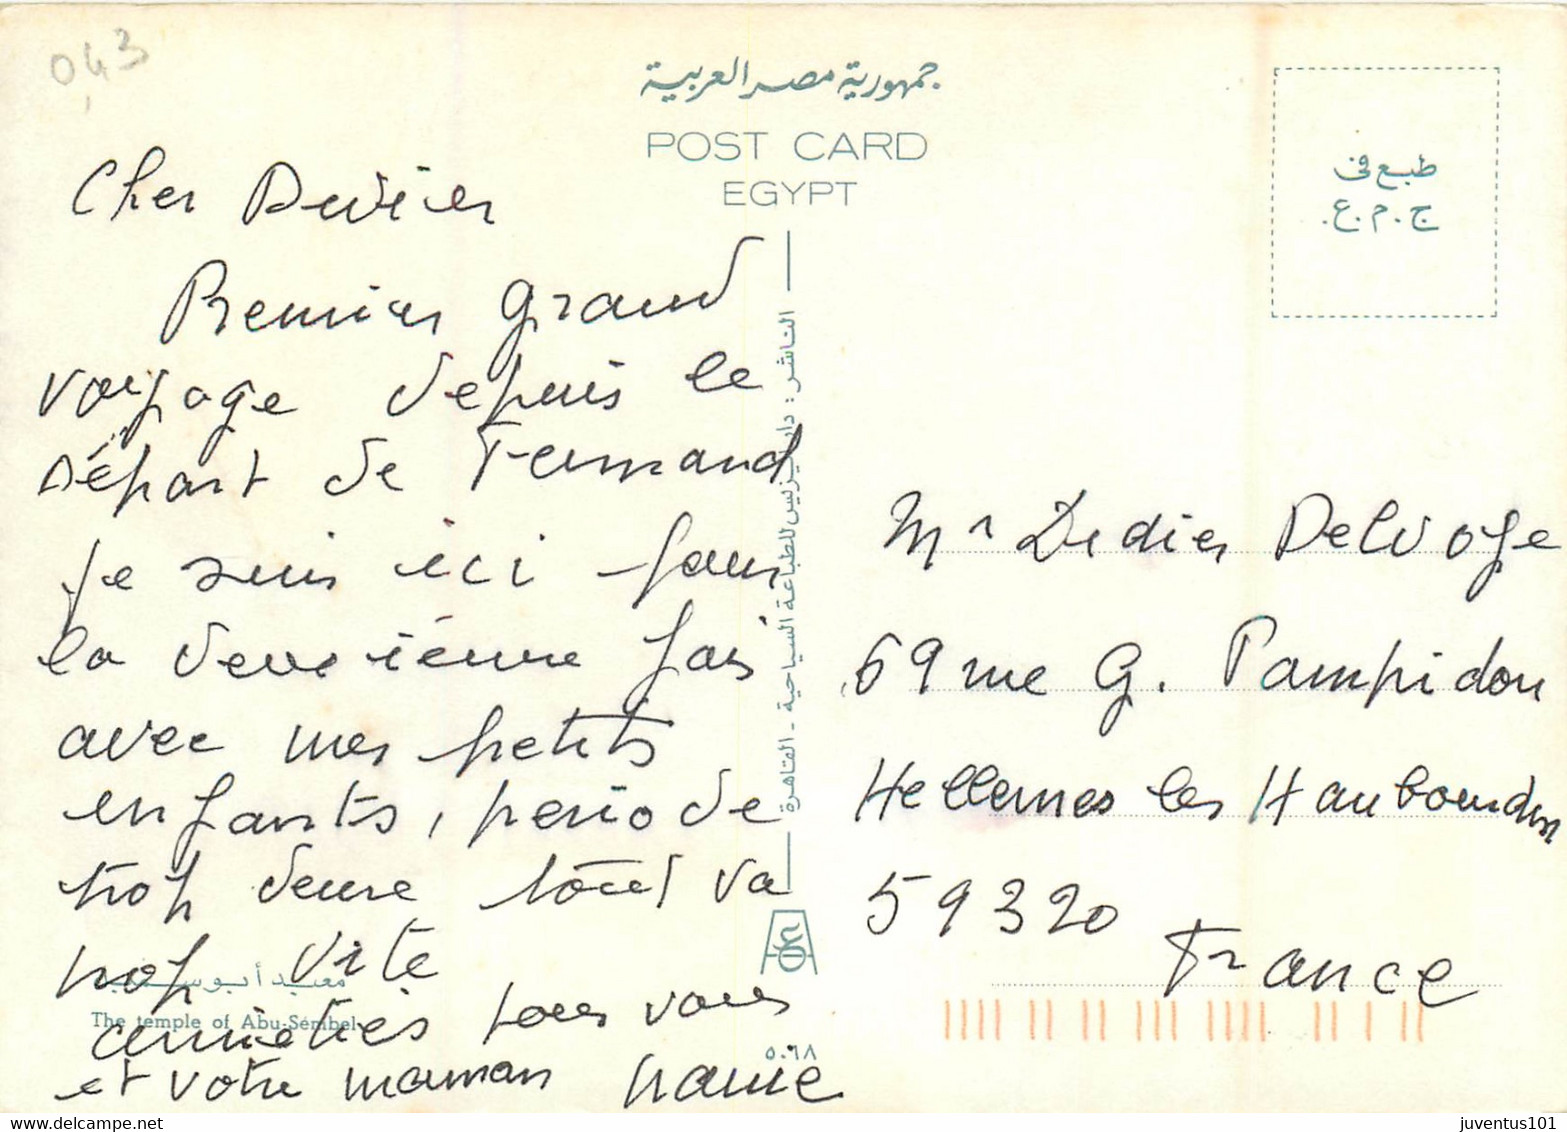 043
جمهورية مصر العربية
POST CARD
EGYPT
طبع فى
ج.م.ع.
Cher Didier
Premier grand
voyage depuis le
départ de Fernand
je suis ici pour
la deuxième fois
avec mes petits
enfants, période
trop dure tout va
trop vite
amitiés pour vous
et votre maman
الناشر: دار للطباعة السياحية - القاهرة
معبد أبو سمبل
The temple of Abu-Sembel
٥٠٦٨
Mr Didier Delvoye
59 rue G. Pompidou
Hellemmes les Haubourdin
59320
France
juventus101